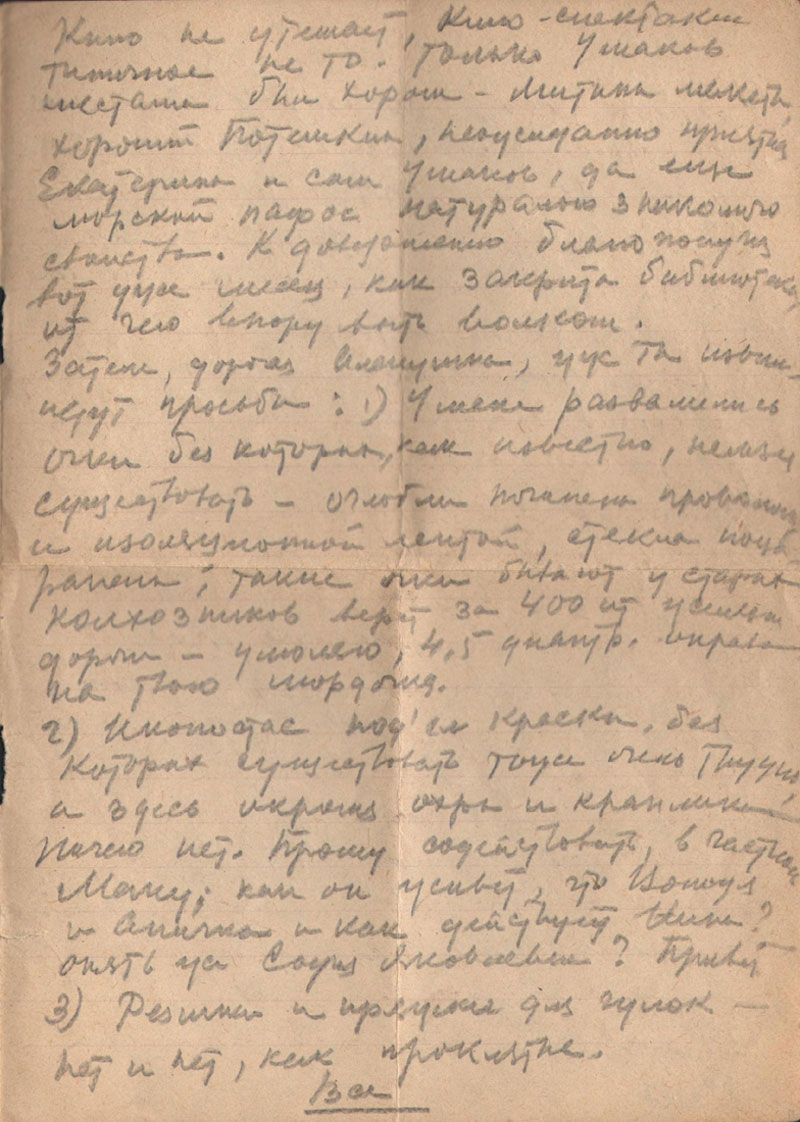 Кино не утешает, Кино-спектакли
типичное не то. Только Ушаков
местами был хорош – макеты,
хороший Потемкин, неожиданно приятна
Екатерина и сам Ушаков, да ещё
морской пафос натурально
свойства. К довершению благополучия
вот уже месяц, как закрыта библиотека,
от чего впору выть волком.
Затем, дорогая Аленушка, уж ты извини
идут просьбы: 1) У меня развалились
очки без которых, как известно, нельзя
существовать – оглобли починены проволокой
и изоляционной лентой, стекла поца
рапаны; такие очки бывают у старых
колхозников
дороги – умоляю, 4,5 диоптр. оправа
на твою мордочку.
2) Иконостас под'ел краски, без
которых существовать тоже очень трудно,
а здесь окромя охры и
ничего нет. Прошу содействовать, в частности
как он живет, что
и Анечка и как действует Нина?
опять же Софья Яковлевна? Привет
3) Резинки и для чулок –
нет и нет, как проклятые.
Все